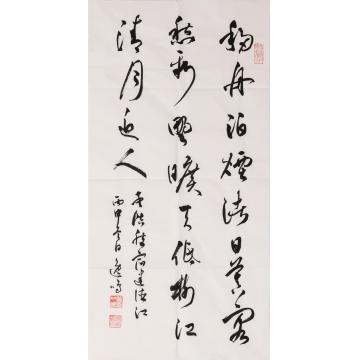 移舟泊烟渚日暮客
愁新野旷天低树江
清月近人
孟浩然宿建德江
丙申冬日逸鸣